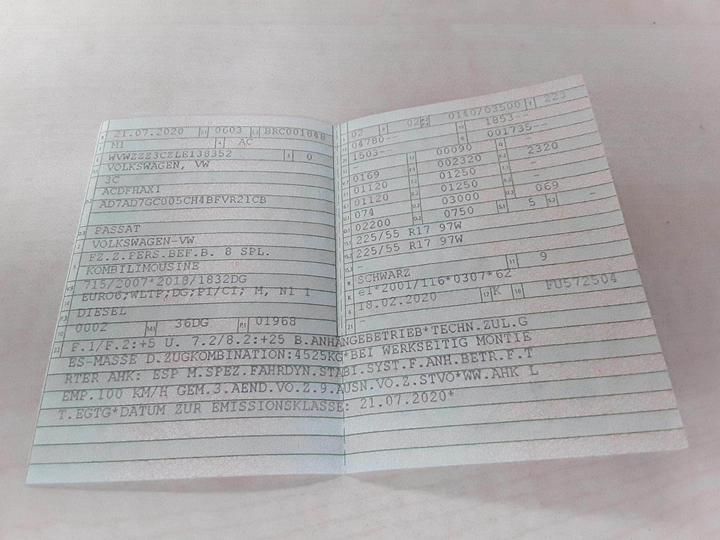 21.07.2020 0603 BRC001848
M1 AC
WVWZZZ3CZLE138352 0
VOLKSWAGEN, VW
3C
ACDFHAX1
AD7AD7GC005CH4BFVR21CB
PASSAT
VOLKSWAGEN-VW
FZ.Z.PERS.BEF.B. 8 SPL.
KOMBILIMOUSINE
715/2007*2018/1832DG
EURO6;WLTP;DG;PI/CI; M, N1 I
DIESEL
0002 36DG 01968
02 02 0140/03500 223
04780-- 1853--
1503-- 001735--
00090
0169 002320 2320
01120 01250
01120 01250 -
074 03000 069
02200 0750 5 -
225/55 R17 97W
225/55 R17 97W
-
-
SCHWARZ 9
e1*2001/116*0307*62
18.02.2020 K FU572504
F.1/F.2:+5 U. 7.2/8.2:+25 B.ANHANGEBETRIEB*TECHN.ZUL.G
ES-MASSE D.ZUGKOMBINATION:4525KG*BEI WERKSEITIG MONTIE
RTER AHK: ESP M.SPEZ.FAHRDYN.STABI.SYST.F.ANH.BETR.F.T
EMP.100 KM/H GEM.3.AEND.VO.Z.9.AUSN.VO.Z.STVO*WW.AHK L
T.EGTG*DATUM ZUR EMISSIONSKLASSE: 21.07.2020*